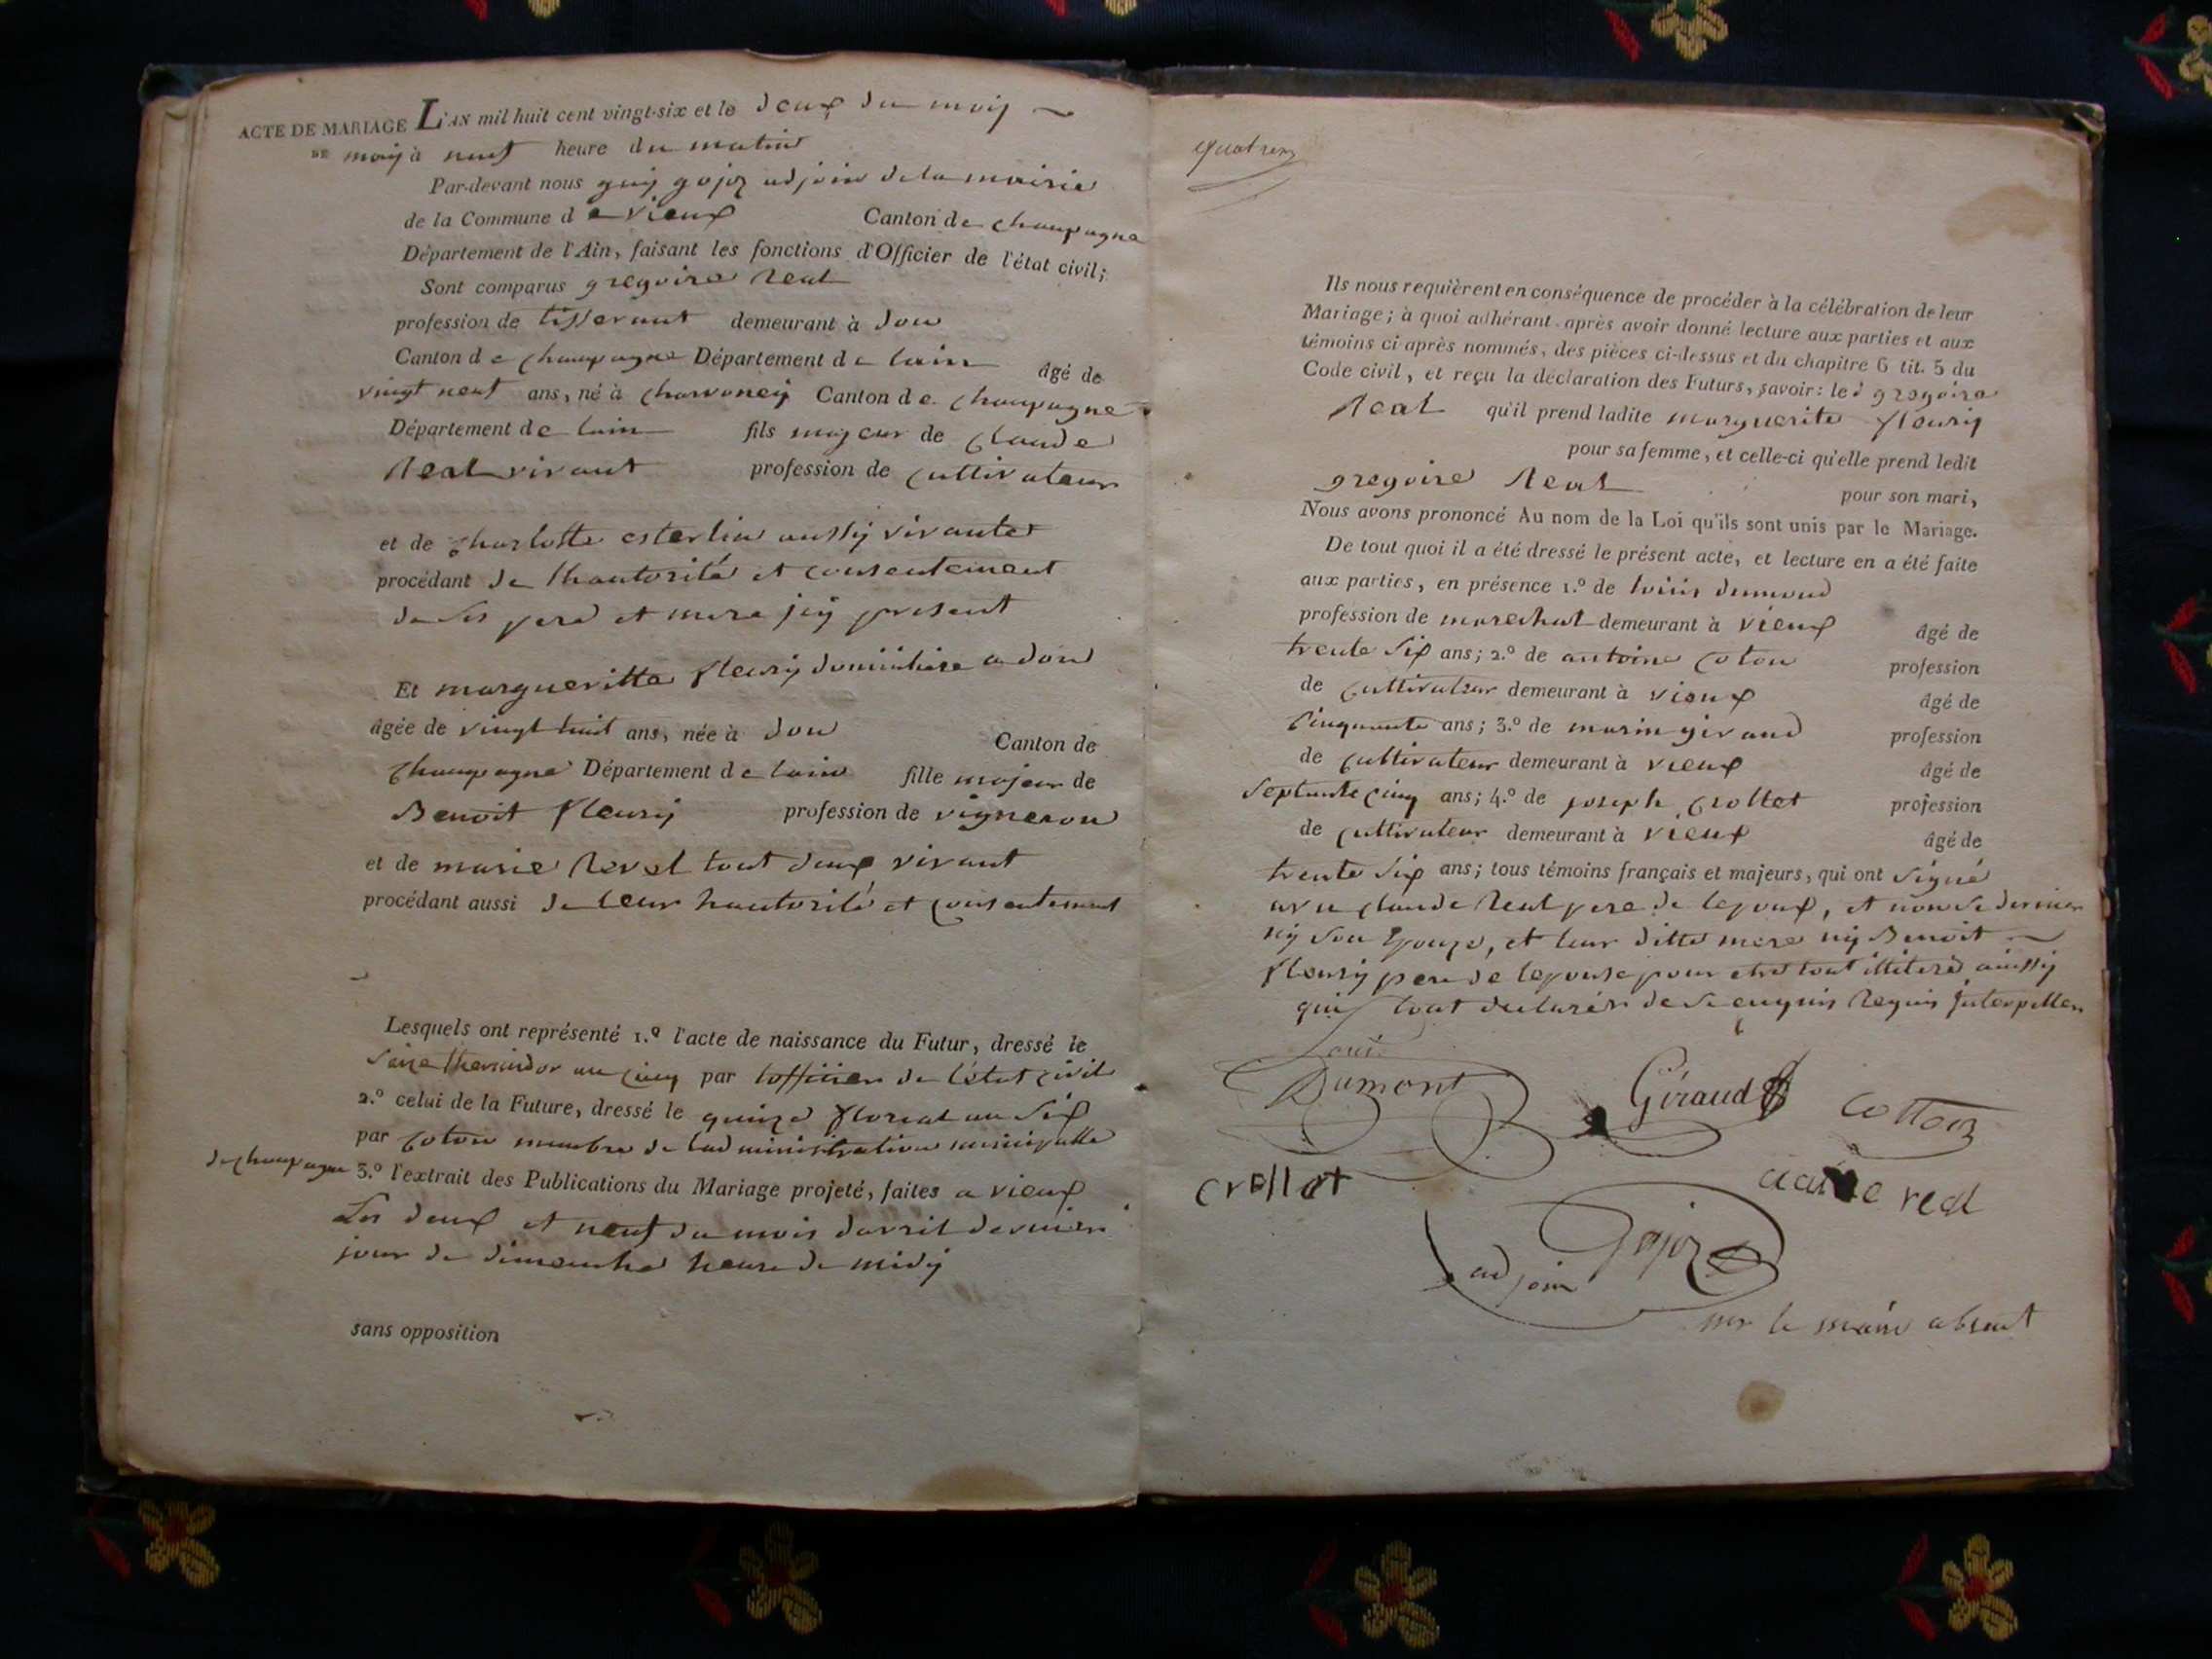 ACTE DE MARIAGE L'AN mil huit cent vingt-six et le deux du mois
DE may à neuf heure du matin
Par-devant nous guy gojoz adjoint de la mairie
de la Commune de vieux Canton de champagne
Département de l'Ain, faisant les fonctions d'Officier de l'état civil;
Sont comparus gregoire Reat
profession de tisserant demeurant à don
Canton de champagne Département de lain âgé de
vingt neuf ans, né à charvoney Canton de champagne
Département de lain fils majeur de claude
Reat vivant profession de cultivateur
et de charlotte esterlin aussy vivante
procédant de lhautorité et consentement
de ses pere et mere jcy present
Et margueritte fleury domiciliere a don
âgée de vingt huit ans, née à don Canton de
champagne Département de lain fille majeur de
Benoit fleury profession de vigneron
et de marie Revel tout deux vivant
procédant aussi de leur hautorité et consentement
Lesquels ont représenté 1.º l'acte de naissance du Futur, dressé le
Seize thermidor an cinq par lofficier de létat civil
2.º celui de la Future, dressé le quinze floreal an Six
par coton membre de ladministration municipalle
de champagne 3.º l'extrait des Publications du Mariage projeté, faites a vieux
Les deux et neuf du mois davril dernier
jour de dimanche heure de midy
sans opposition
quatre
Ils nous requièrent en conséquence de procéder à la célébration de leur
Mariage; à quoi adhérant après avoir donné lecture aux parties et aux
témoins ci-après nommés, des pièces ci-dessus et du chapitre 6 tit. 5 du
Code civil, et reçu la déclaration des Futurs, savoir: led gregoire
Reat qu'il prend ladite marguerite fleury
pour sa femme, et celle-ci qu'elle prend ledit
gregoire Reat pour son mari,
Nous avons prononcé Au nom de la Loi qu'ils sont unis par le Mariage.
De tout quoi il a été dressé le présent acte, et lecture en a été faite
aux parties, en présence 1.º de louis dumond
profession de marechal demeurant à vieux âgé de
trente Six ans; 2.º de antoine coton profession
de cultivateur demeurant à vieux âgé de
Cinquante ans; 3.º de marin giraud profession
de cultivateur demeurant à vieux âgé de
Septante cinq ans; 4.º de joseph crollet profession
de cultivateur demeurant à vieux âgé de
trente Six ans; tous témoins français et majeurs, qui ont signé
avec claude Reat pere de lepoux, et non ce dernier
ny Son Epouze, et leur ditte mere ny Benoit
fleury pere de lepouse pour etre tout illiteré ainssy
quil lont declarés de ce enquis Requis Interpellen
Louis
Dumont Giraud cotton
crollet claude reat
Gojoz
adjoin
pour le maire absent